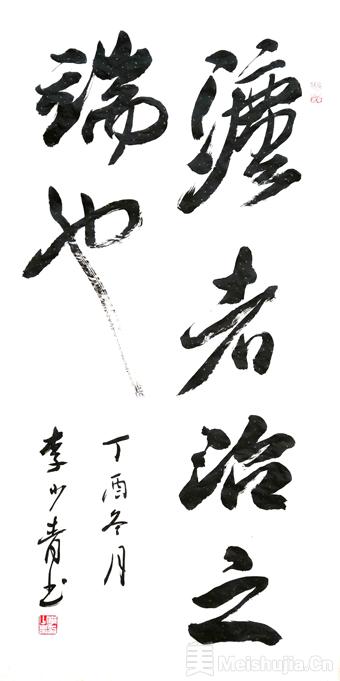 灋者治之
端也
丁酉冬月
李少青书
美 Meishujia.Cn